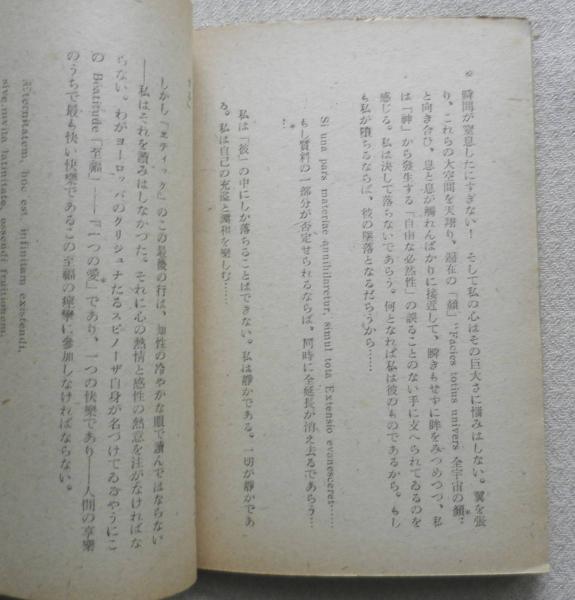 瞬間が窒息したにすぎない! そして私の心はその巨大さに悩みはしない。翼を張
り、これらの大空間を天翔り、遍在の「顔」"Facies totius univers 全宇宙の顔"
と向き合ひ、息と息が触れんばかりに接近して、瞬きもせずに眸をみつめつつ、私
は「神」から発生する「自由な必然性」の誤ることのない手に支へられてゐるのを
感じる。私は決して落らないであらう。何となれば私は彼のものであるから。もし
も私が墮ちるならば、彼の墜落となるだらうから……
Si una pars materiae annihilaretur, simul tota Extensio evanesceret……
もし質料の一部分が否定せられるならば、同時に全延長が消え去るであらう…
…
私は「彼」の中にしか落ちることはできない。私は静かである。一切が静かであ
る。私は自己の充溢と調和を楽しむ……
しかし『エティック』のこの最後の行は、知性の冷やかな眼で読んではならない
――私はそれを読みはしなかった。それに心の熱情と感性の熱意を注がなければな
らない。わがヨーロッパのクリシュナたるスピノーザ自身が名づけてゐるやうにこ
の Beatitude「至福」――『一つの愛』であり、一つの快樂であり――人間の享樂
のうちで最も快い快樂であるこの至福の痙攣に参加しなければならない。
Aeternitatem, hoc est, infinitam existendi,
sive, invita latinitate, essendi fruitionem.